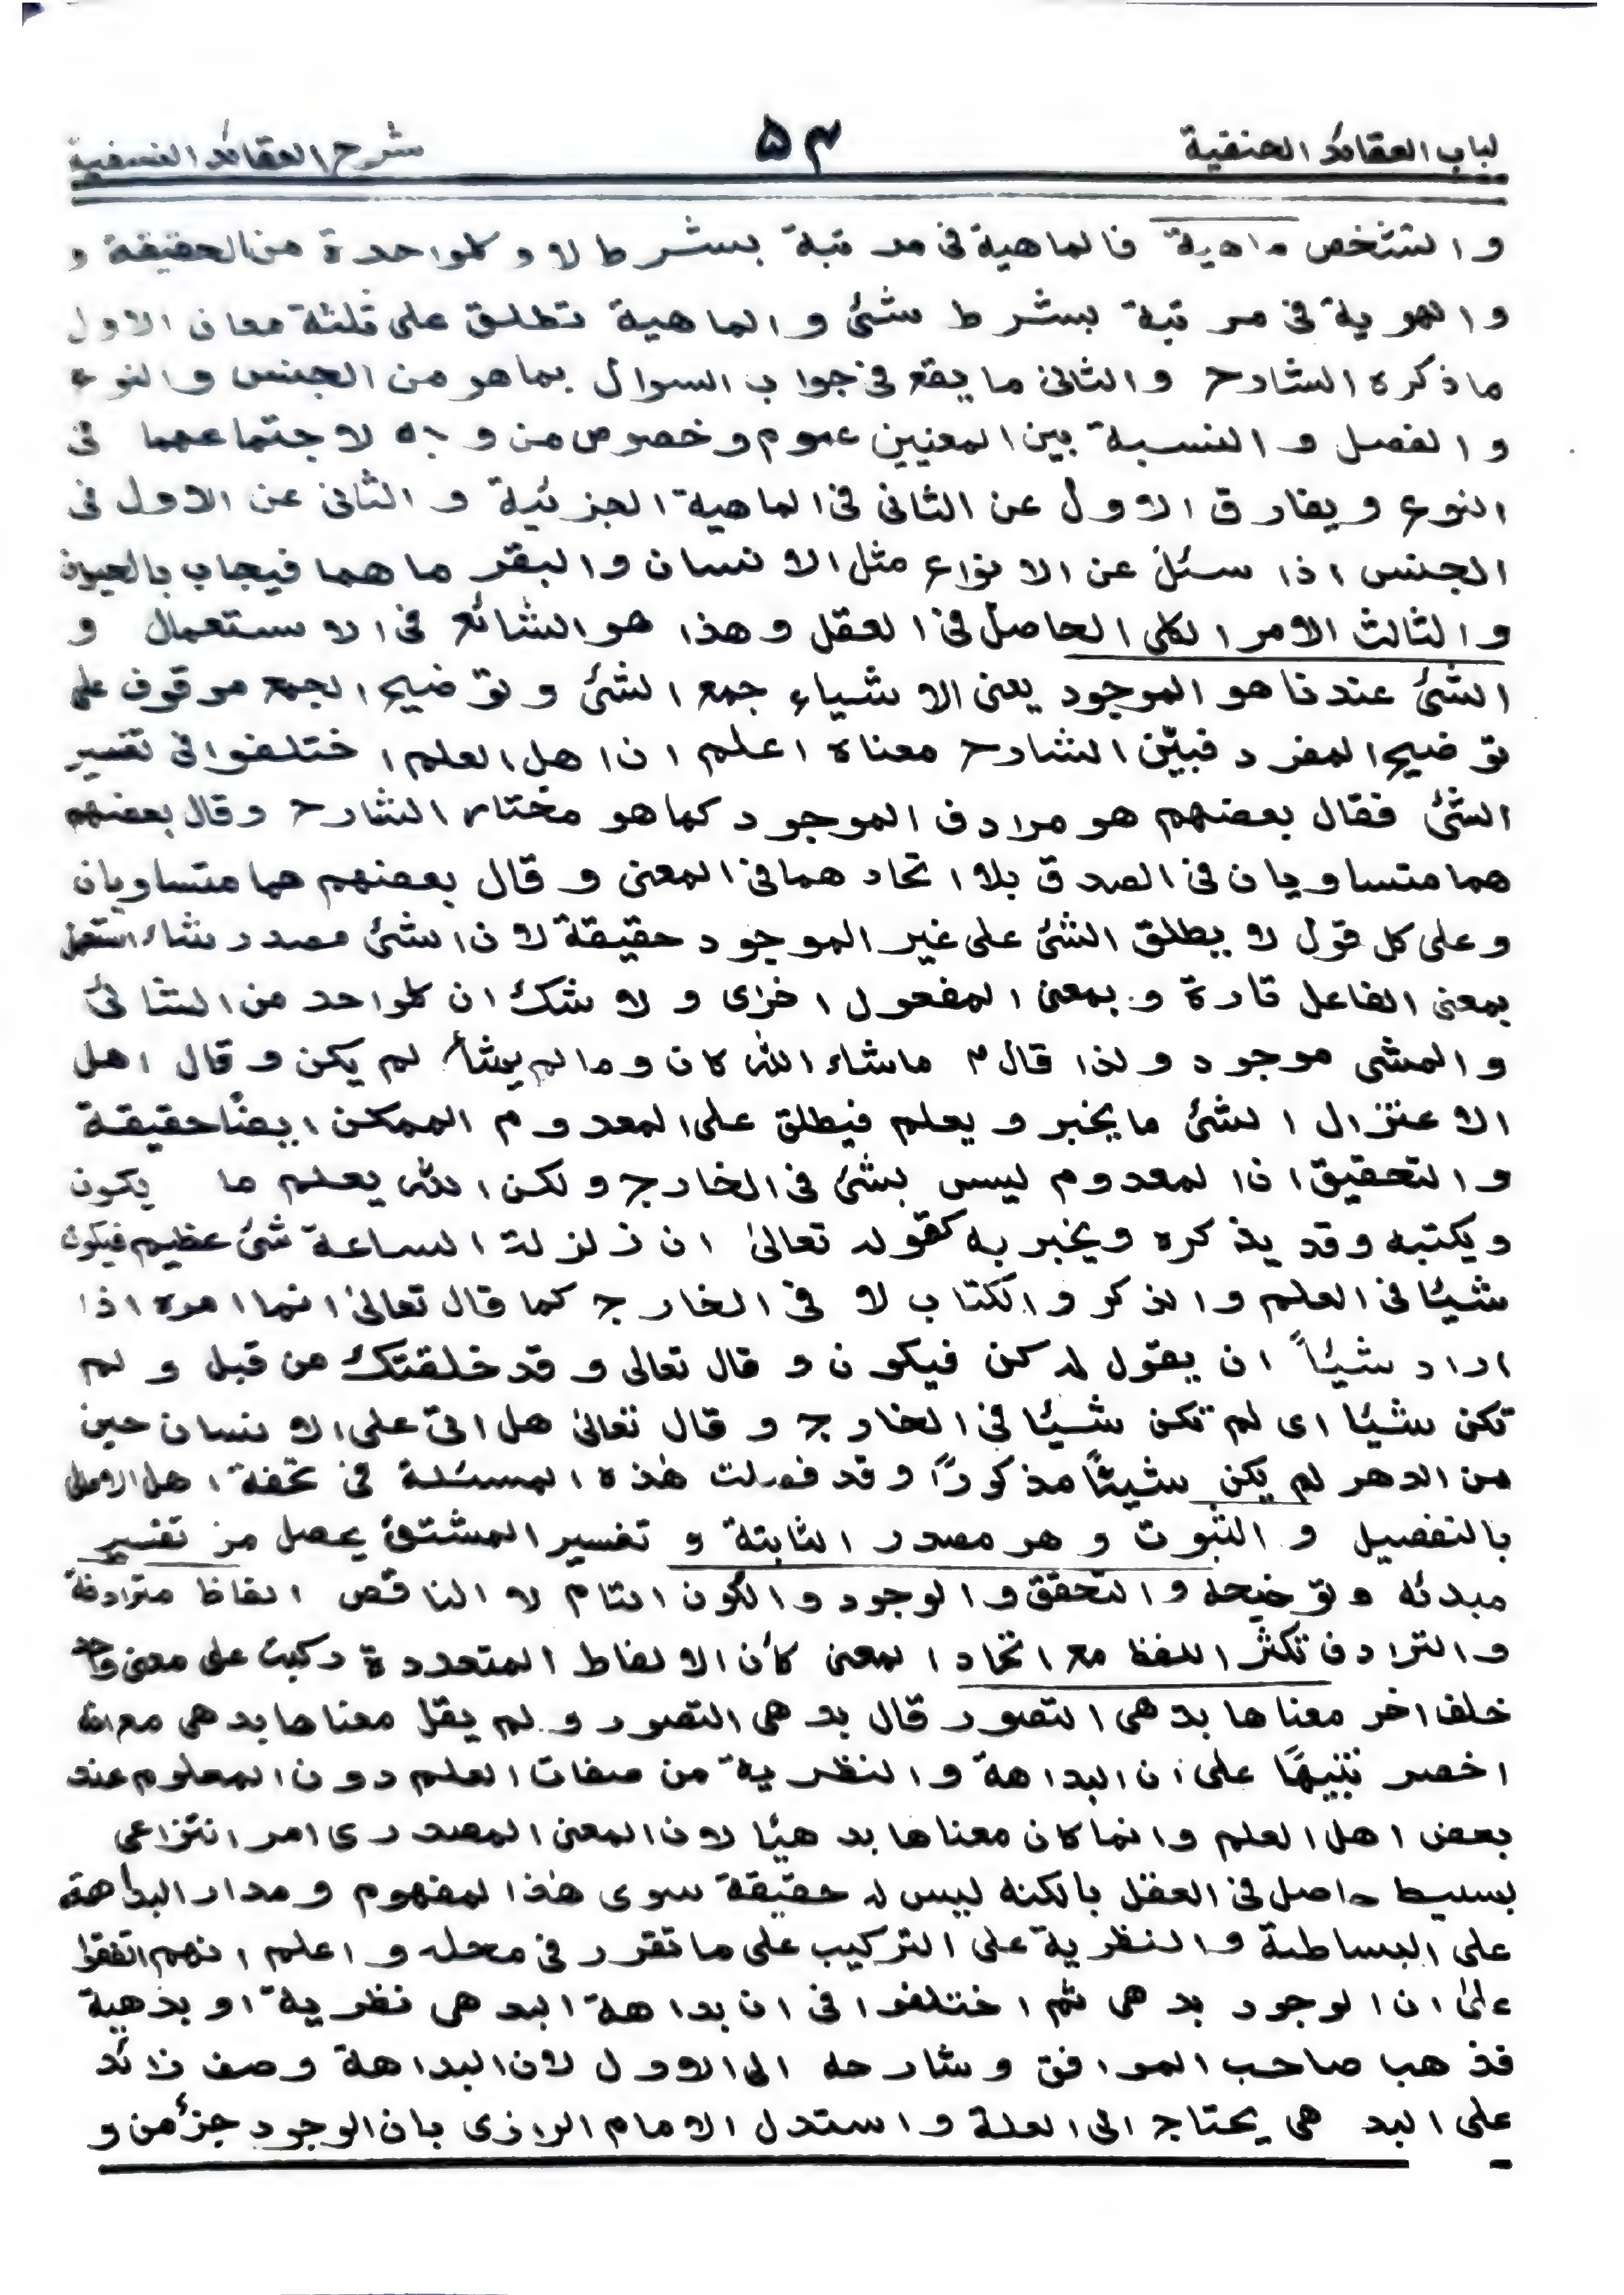 لباب العقائد الحنفية ۵۳ شرح العقائد النسفية
والتشخص ماهية فالماهية فى مرتبة بشرط لا وكلواحدة من الحقيقة و
والهوية فى مرتبة بشرط شئ والماهية تطلق على ثلثة معان الاول
ماذكره الشارح والثانى ما يقع فى جواب السوال بماهو من الجنس والنوع
والفصل والنسبة بين المعنيين عموم وخصوص من وجه لاجتماعهما فى
النوع ويفارق الاول عن الثانى فى الماهية الجزئية والثانى عن الاول فى
الجنس اذا سئل عن الانواع مثل الانسان والبقر ماهما فيجاب بالحيوان
والثالث الامر الكلى الحاصل فى العقل وهذا هو الشائع فى الاستعمال و
الشئ عندنا هو الموجود يعنى الاشياء جمع الشئ وتوضيح الجمع موقوف على
توضيح المفرد فبيّن الشارح معناه اعلم ان اهل العلم اختلفوا فى تفسير
الشئ فقال بعضهم هو مرادف الموجود كماهو مختار الشارح وقال بعضهم
هما متساويان فى الصدق بلا اتحادهما فى المعنى وقال بعضهم هما متساويان
وعلى كل قول لا يطلق الشئ على غير الموجود حقيقة لان الشئ مصدر شاء استعمل
بمعنى الفاعل تارة وبمعنى المفعول اخرى ولا شك ان كلواحد من الشائى
والمشى موجود ولذا قال م ماشاء الله كان ومالم يشأ لم يكن وقال اهل
الاعتزال الشئ ما يخبر ويعلم فيطلق على المعدوم الممكن ايضًا حقيقة
والتحقيق ان المعدوم ليس بشئ فى الخارج ولكن الله يعلم ما يكون
ويكتبه وقد يذكره ويخبر به كقوله تعالىٰ ان زلزلة الساعة شئ عظيم فيكون
شيئا فى العلم والذكر والكتاب لا فى الخارج كما قال تعالىٰ انما امره اذا
اراد شيئاً ان يقول له كن فيكون وقال تعالى وقد خلقتك من قبل ولم
تكن شيئا اى لم تكن شيئا فى الخارج وقال تعالىٰ هل اتىٰ على الانسان حين
من الدهر لم يكن شيئًا مذكورًا وقد فصلت هٰذه المسئلة فى تحفة اهل
بالتفصيل والثبوت وهو مصدر الثابتة و تفسير المشتق يحصل من تفسير
مبدئه وتوضيحه والتحقق والوجود والكون التام لا الناقص الفاظ مترادفة
والترادف تكثّر اللفظ مع اتحاد المعنى كأن الالفاظ المتعددة ركبت على معنى واحد
خلف اخر معناها بدهى التصور قال بدهى التصور ولم يقل معناها بدهى مع انه
اخصر تنبيهًا على ان البداهة والنظرية من صفات العلم دون المعلوم عند
بعض اهل العلم وانما كان معناها بدهيًا لان المعنى المصدرى امر انتزاعى
بسيط حاصل فى العقل بالكنه ليس له حقيقة سوى هٰذا المفهوم ومدار البداهة
على البساطة والنظرية على التركيب على ما تقرر فى محله واعلم انهم اتفقوا
علىٰ ان الوجود بدهى ثم اختلفوا فى ان بداهة البدهى نظرية او بدهية
فذهبا صاحب المواقق وشارحه الى الاول لان البداهة وصف زائد
على البدهى يحتاج الى العلة واستدل الامام الرازى بان الوجود جزؤ من و